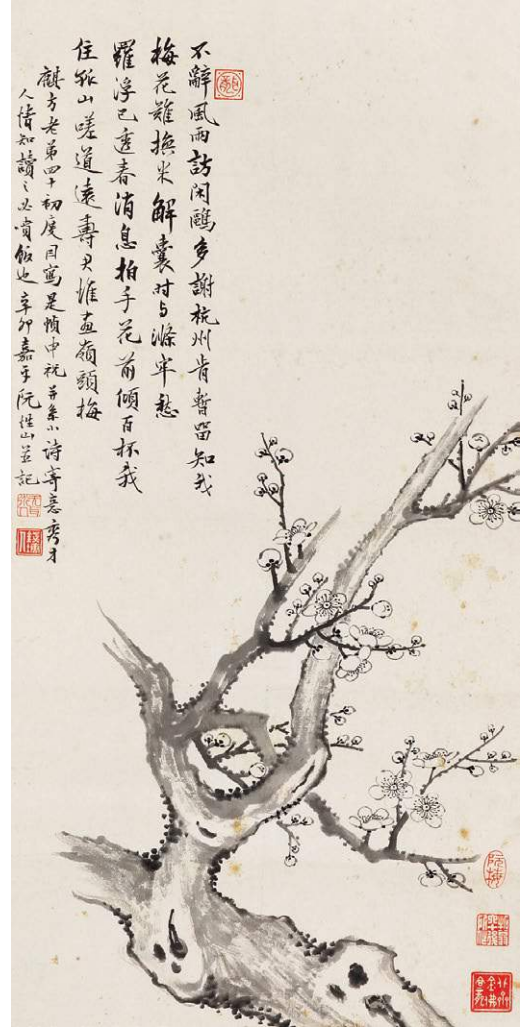 不辭風雨訪閑鷗多謝杭州肯暫留知我
梅花難換米解囊时与滌牢愁
羅浮已透春消息拍手花前傾百杯我
住孤山嗟道遠壽君惟畫嶺頭梅
麒方老弟四十初度因寫是幀申祝并系小诗寄意秀才
人情知讀之必噴飯也辛卯嘉平阮性山並記